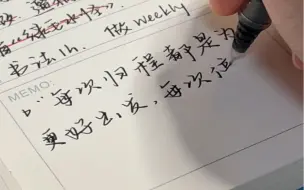 书法1h. 做weekly
MEMO:
"每次归程都是为
更好出发,每次